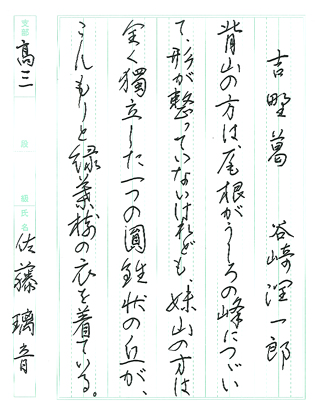 吉野葛　谷崎潤一郎
背山の方は、尾根がうしろの峰につづい
て、形が整っていないけれども、妹山の方は
全く獨立した一つの圓錐状の丘が、
こんもりと緑葉樹の衣を着ている。
支部 高三 段 組 氏名 佐藤璃音